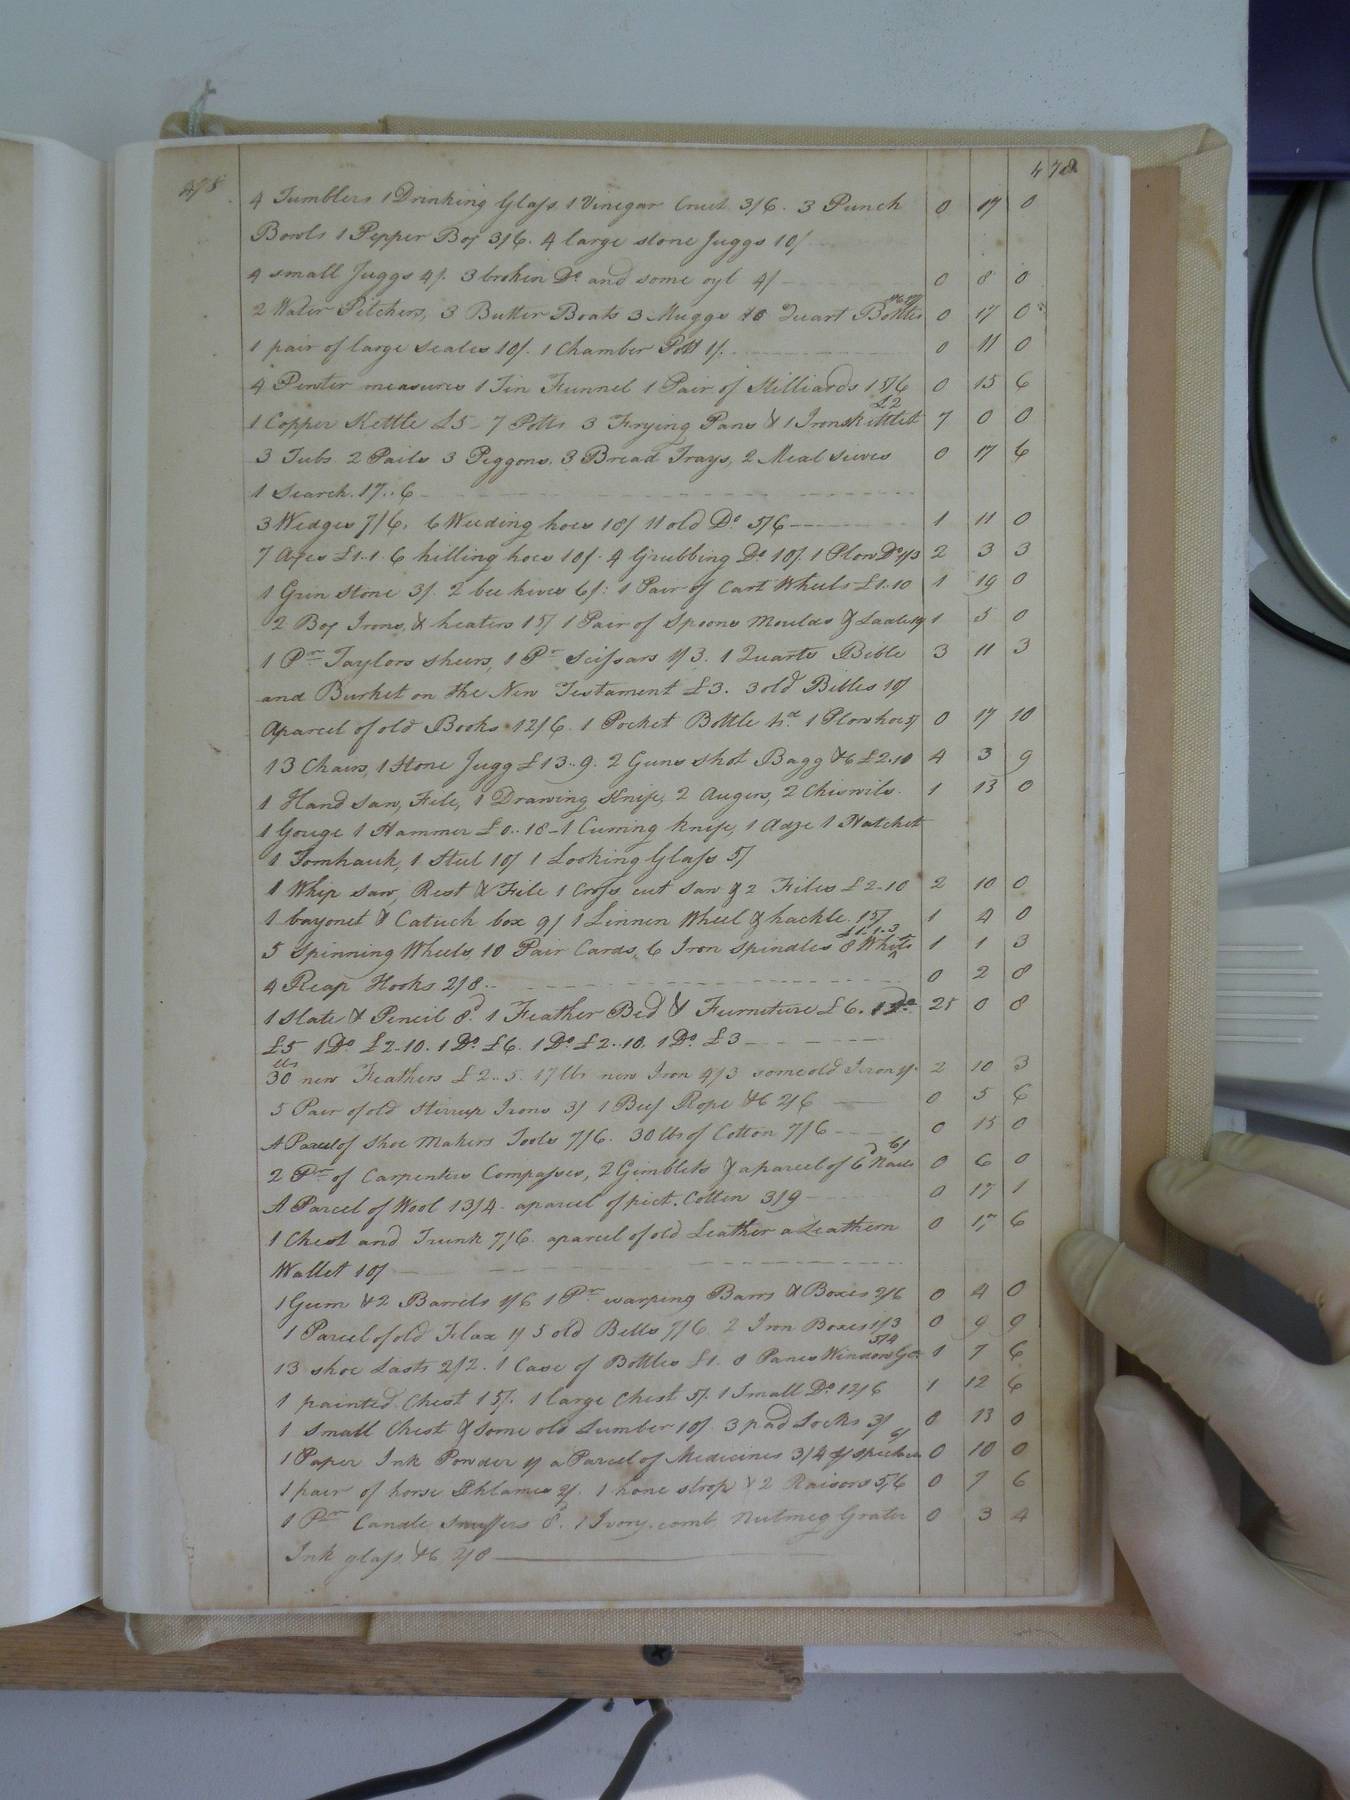 478
478
4 Tumblers 1 Drinking Glass 1 Vinegar Cruit 3/6. 3 Punch 0 17 0
Bowls 1 Pepper Box 3/6. 4 large stone Juggs 10/
4 small Juggs 4/. 3 broken Do and some oyl 4/ 0 8 0
2 Water Pitchers, 3 Butter Boats 3 Muggs 18 Quart Bottles 0 17 0
1 pair of large Scales 10/. 1 Chamber Pott 1/. 0 11 0
4 Pewter measures 1 Tin Funnel 1 Pair of Stilliards 15/6 0 15 6
1 Copper Kettle £5 - 7 Potts 3 Frying Pans & 1 Iron Skittlet £2 7 0 0
3 Tubs 2 Pails 3 Piggons, 3 Bread Trays, 2 Meal sieves 0 17 6
1 Search. 17..6
3 Wedges 7/6. 6 Weeding hoes 18/ 11 old Do 5/6 1 11 0
7 Axes £1-1. 6 hilling hoes 10/. 4 Grubbing Do 10/. 1 Plow Do 2/3 2 3 3
1 Grin stone 3/. 2 bee hives 6/: 1 Pair of Cart Wheels £1-10 1 19 0
2 Box Irons, & heaters 15/ 1 Pair of Spoons Moulds & Ladle 1 5 0
1 Pr Taylors shears, 1 Pr Scissars 1/3. 1 Quarto Bible 3 11 3
and Burket on the New Testament £3. 3 old Bibles 10/
A parcel of old Books 12/6. 1 Pocket Bottle 4d. 1 Plow hoe 5/ 0 17 10
13 Chairs, 1 Stone Jugg £1 3..9. 2 Guns shot Bagg &c £2.10 4 3 9
1 Hand saw, File, 1 Drawing Knife, 2 Augers, 2 Chiswils. 1 13 0
1 Gouge 1 Hammer £0..18 - 1 Curring knife, 1 Adze 1 Hatchet
1 Tomhauk, 1 Steel 10/ 1 Looking Glass 5/
1 Whip saw, Rest & File 1 Cross cut saw & 2 Files £2-10 2 10 0
1 bayonet & Catuch box 9/ 1 Linnen Wheel & hackle 15/ 1 4 0
5 Spinning Wheels, 10 Pair Cards, 6 Iron Spindles 8 Whirls £1-1-3 1 1 3
4 Reap Hooks 2/8.. 0 2 8
1 Slate & Pencil 8d. 1 Feather Bed & Furniture £6. 1 Do 25 0 8
£5 1 Do £2-10. 1 Do £6. 1 Do £2..10. 1 Do £3
30 lbs new Feathers £2..5. 17 lbs new Iron 4/3 some old Iron 1/ 2 10 3
5 Pair of old Stirrup Irons 3/ 1 Beef Rope &c 2/6 0 5 6
A Parcel of Shoe Makers Tools 7/6. 30 lbs of Cotton 7/6 0 15 0
2 Pr of Carpenters Compasses, 2 Gimblets & a parcel of 6d Nails 6/ 0 6 0
A Parcel of Wool 13/4. a parcel of pict. Cotton 3/9 0 17 1
1 Chest and Trunk 7/6. a parcel of old Leather a Leathern 0 17 6
Wallet 10/
1 Gum & 2 Barrels 1/6 1 Pr warping Barrs & Boxes 2/6 0 4 0
1 Parcel of old Flax 1/ 5 old Bells 7/6. 2 Iron Boxes 1/3 0 9 9
13 shoe Lasts 2/2. 1 Case of Bottles £1. 8 Panes Window Gs. 5/4 1 7 6
1 painted Chest 15/. 1 large Chest 5/. 1 Small Do 12/6 1 12 6
1 Small Chest & some old Lumber 10/. 3 pad Locks 3/ 0 13 0
1 Paper Ink Powder 1/ a Parcel of Medicines 3/4 6/ 0 10 0
1 pair of horse Phlames 2/. 1 hone strop & 2 Raisors 5/6 0 7 6
1 Pr Candle Snuffers 8d. 1 Ivory comb Nutmeg Grater 0 3 4
Ink glass &c 2/8